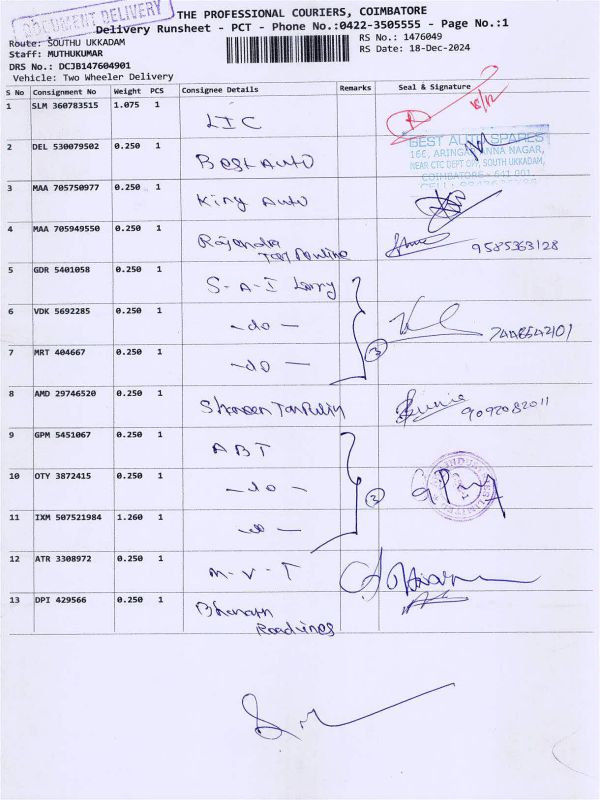 DOCUMENT DELIVERY
THE PROFESSIONAL COURIERS, COIMBATORE
Delivery Runsheet - PCT - Phone No.:0422-3505555 - Page No.:1
Route: SOUTHU UKKADAM
RS No.: 1476049
Staff: MUTHUKUMAR
RS Date: 18-Dec-2024
DRS No.: DCJB147604901
Vehicle: Two Wheeler Delivery
S No Consignment No Weight PCS Consignee Details Remarks Seal & Signature
1 SLM 360783515 1.075 1 LIC 18/12
2 DEL 530079502 0.250 1 Best Auto
BEST AUTO SPARES
NEAR CTC DEPT OFF, SOUTH UKKADAM,
COIMBATORE - 641 001.
3 MAA 705750977 0.250 1 King Auto
4 MAA 705949550 0.250 1 Rajendra 9585363128
5 GDR 5401058 0.250 1 S-A-I Lorry
6 VDK 5692285 0.250 1 -do-
7 MRT 404667 0.250 1 -do- 3
8 AMD 29746520 0.250 1 9092082011
9 GPM 5451067 0.250 1 ABT
10 OTY 3872415 0.250 1 -do- 3
11 IXM 507521984 1.260 1 -do-
12 ATR 3308972 0.250 1 M-V-T
13 DPI 429566 0.250 1 Bharath
Roadlines